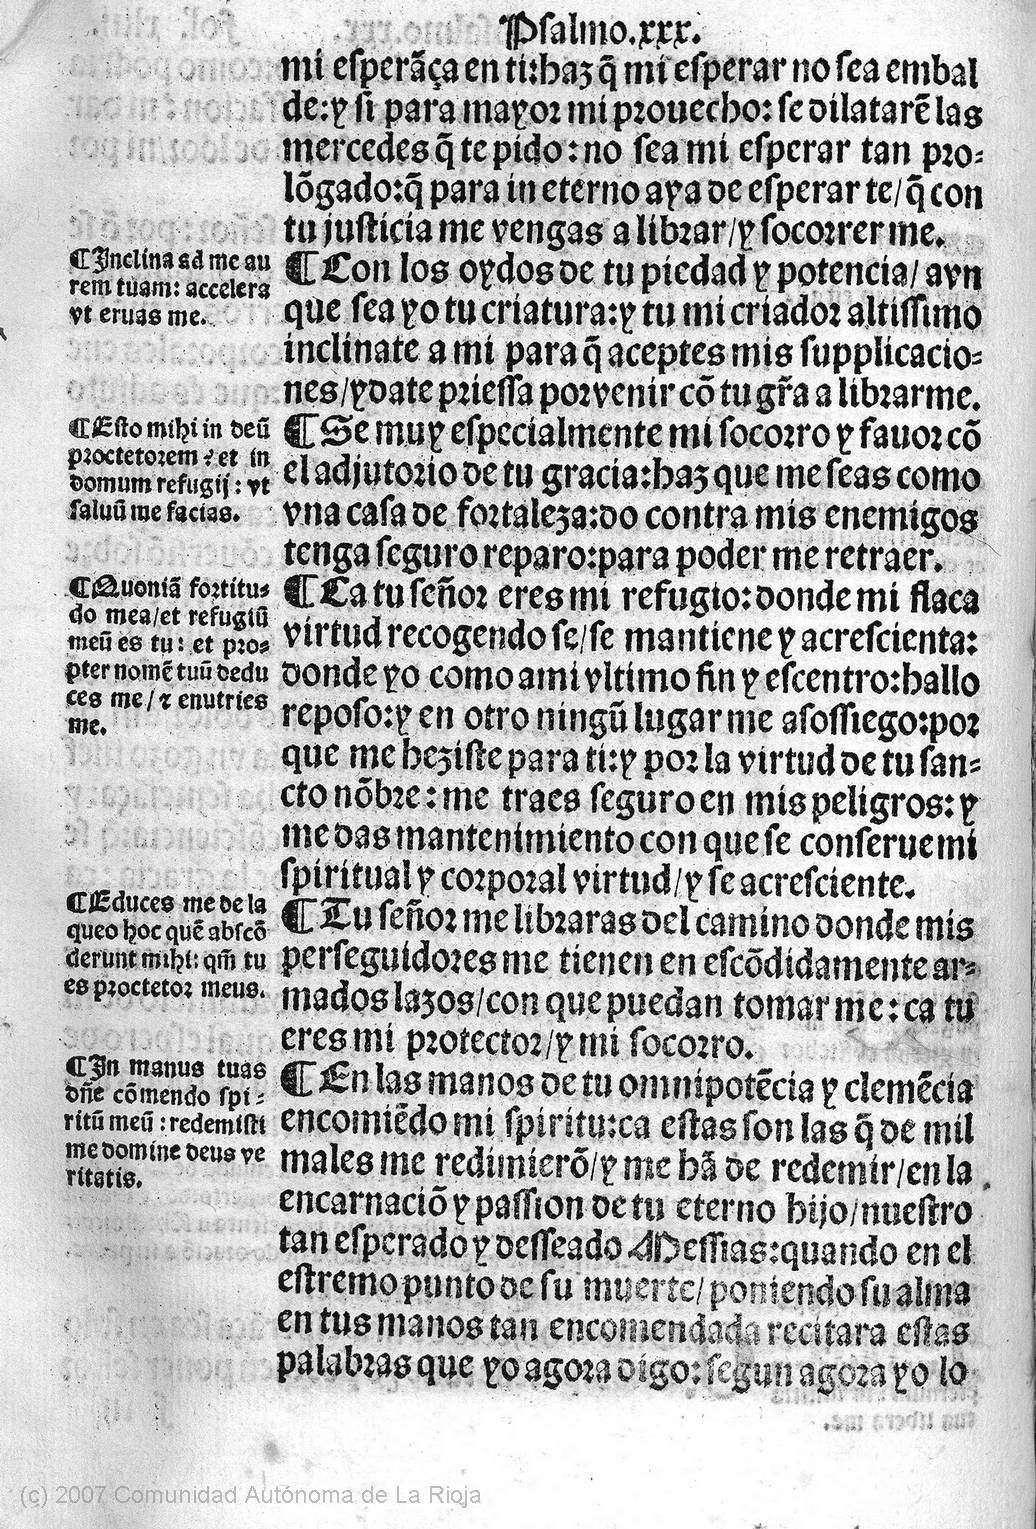 Psalmo.xxx.
mi esperãça en ti:haz q̃ mi esperar no sea embal
de:y si para mayor mi prouecho: se dilatarẽ las
mercedes q̃ te pido:no sea mi esperar tan pro-
lõgado:q̃ para in eterno aya de esperar te/q̃ con
tu justicia me vengas a librar/y socorrer me.
¶Inclina ad me au
rem tuam: accelera
vt eruas me.
¶Con los oydos de tu piedad y potencia/ avn
que sea yo tu criatura:y tu mi criador altissimo
inclinate a mi para q̃ aceptes mis supplicacio-
nes/ydate priessa por venir cõ tu gr̃a a librarme.
¶Esto mihi in deũ
proctetorem ⁊ et in
domum refugij: vt
saluũ me facias.
¶Se muy especialmente mi socorro y fauor cõ
el adjutorio de tu gracia:haz que me seas como
vna casa de fortaleza:do contra mis enemigos
tenga seguro reparo:para poder me retraer.
¶Quoniã fortitu-
do mea/et refugiũ
meũ es tu: et pro-
pter nomẽ tuũ dedu
ces me/⁊ enutries
me.
¶Ca tu señor eres mi refugio:donde mi flaca
virtud recogendo se/se mantiene y acrescienta:
donde yo como a mi vltimo fin y escentro:hallo
reposo:y en otro ningũ lugar me asossiego:por
que me heziste para ti:y por la virtud de tu san-
cto nõbre: me traes seguro en mis peligros: y
me das mantenimiento con que se conserue mi
spiritual y corporal virtud/y se acresciente.
¶Educes me de la
queo hoc quẽ abscõ
derunt mihi: qm̃ tu
es proctetor meus.
¶Tu señor me libraras del camino donde mis
perseguidores me tienen en escõdidamente ar-
mados lazos/con que puedan tomar me: ca tu
eres mi protector/y mi socorro.
¶In manus tuas
dñe cõmendo spi-
ritũ meũ :redemisti
me domine deus ve
ritatis.
¶En las manos de tu omnipotẽcia y clemẽcia
encomiẽdo mi spiritu:ca estas son las q̃ de mil
males me redimierõ/y me hã de redemir/en la
encarnaciõ y passion de tu eterno hijo/nuestro
tan esperado y desseado Messias:quando en el
estremo punto de su muerte/poniendo su alma
en tus manos tan encomendada recitara estas
palabras que yo agora digo: segun agora yo lo
(c) 2007 Comunidad Autónoma de La Rioja